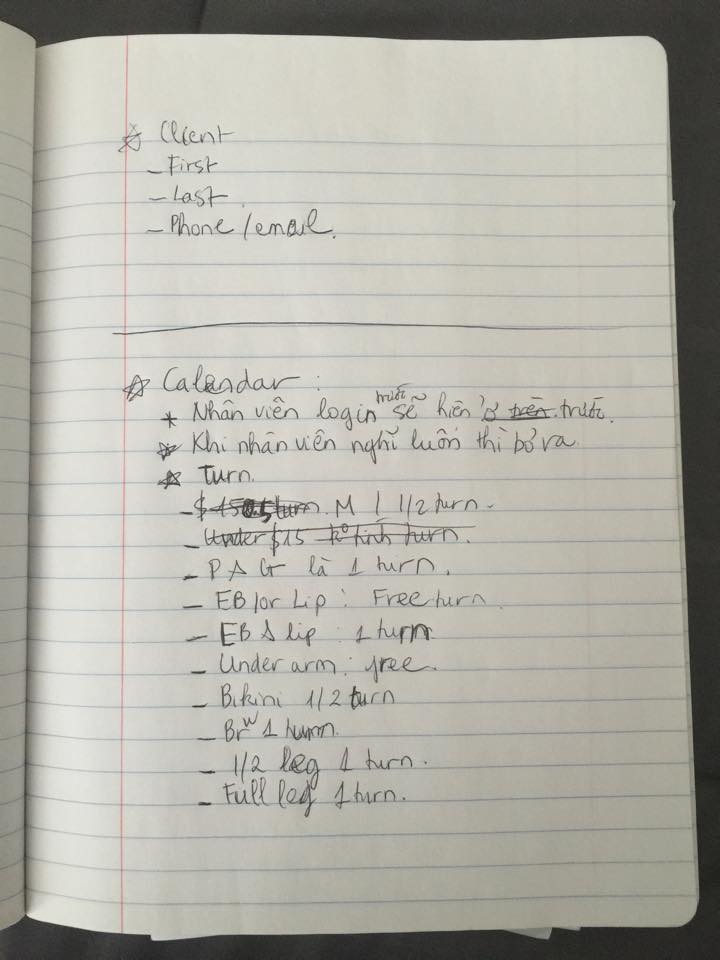 ☆ Client
- First
- Last.
- Phone/email.
☆ Calendar:
* Nhân viên login trước sẽ hiện ở trên trước.
* Khi nhân viên nghĩ luôn thì bỏ ra
☆ Turn.
- M 1/2 turn.
- Under $15 k° tính turn.
- P & G là 1 turn.
- EB/or Lip: Free turn.
- EB & lip: 1 turn
- Under arm: free.
- Bikini 1/2 turn
- Brw 1 turn.
- 1/2 leg 1 turn.
- Full leg 1 turn.